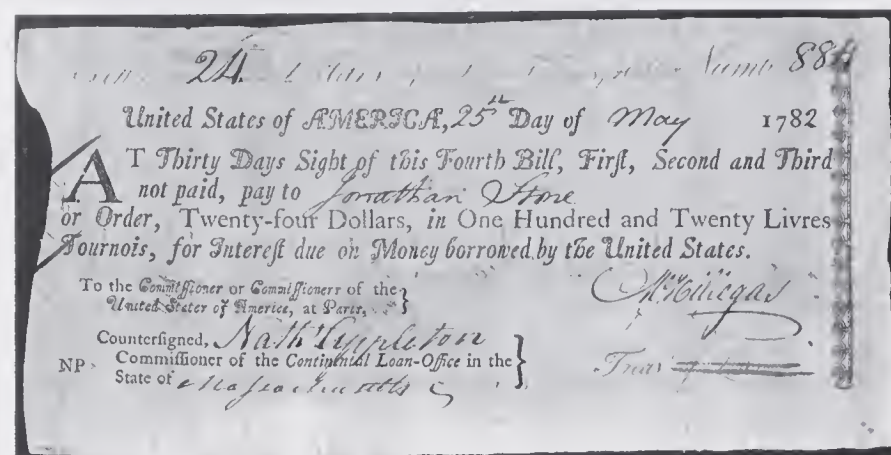 24. Dollars Numb 884
United States of AMERICA, 25th Day of May 1782
AT Thirty Days Sight of this Fourth Bill, First, Second and Third
not paid, pay to Jonathan Stone
or Order, Twenty-four Dollars, in One Hundred and Twenty Livres
Tournois, for Interest due on Money borrowed by the United States.
To the Commissioner or Commissioners of the
United States of America, at Paris,
M Hillegas
Countersigned, Nathl Appleton
NP Commissioner of the Continental Loan-Office in the
State of Massachusetts
Treas